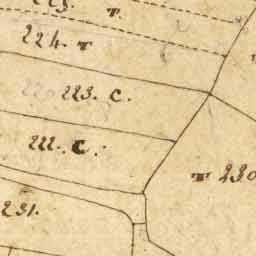 T.
224. T
223. C.
222. C.
T 230
231.